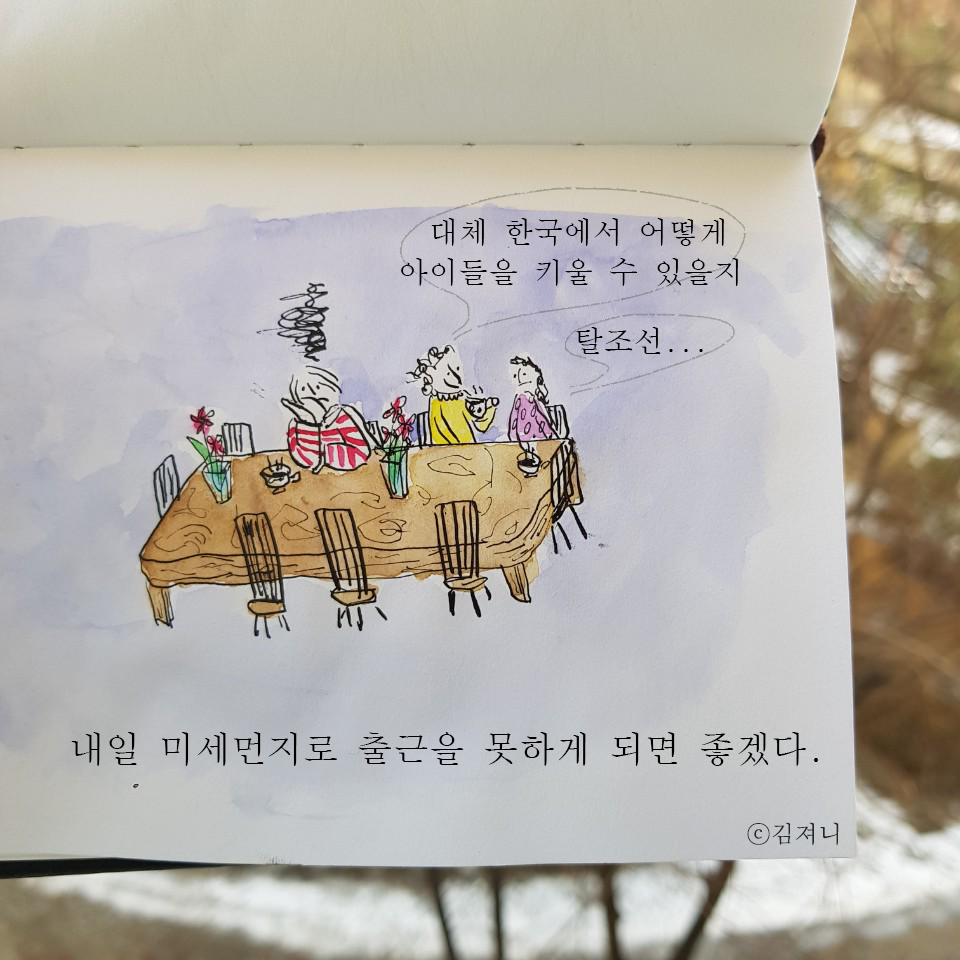 대체 한국에서 어떻게
아이들을 키울 수 있을지
탈조선...
내일 미세먼지로 출근을 못하게 되면 좋겠다.
ⓒ김져니